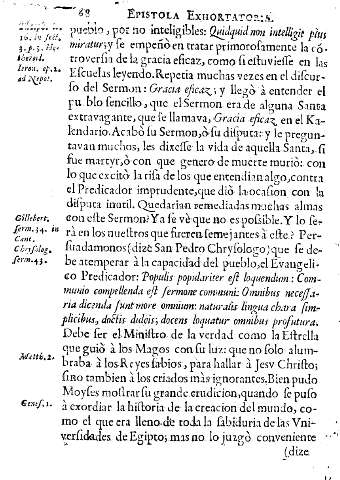 68 EPISTOLA EXHORTATORIA.
pueblo, por no inteligibles: Quidquid non intelligit pius
miratur; y se empeñò en tratar primorosamente la cõ
troversia de la gracia eficaz, como si estuviesse en las
Escuelas leyendo. Repetia muchas vezes en el discur-
so del Sermon: Gracia eficaz; y llegò à entender el
pueblo sencillo, que el Sermon era de alguna Santa
extravagante, que se llamava, Gracia eficaz en el Ka-
lendario. Acabò su Sermon, ò su disputa: y le pregun-
tavan muchos, les dixesse la vida de aquella Santa, si
fue martyr, ò con que genero de muerte muriò: con
lo que excitò la risa de los que entendian algo, contra
el Predicador imprudente, que diò la ocasion con la
disputa inutil. Quedarian remediadas muchas almas
con este Sermon? Ya se vè que no es possible. Y lo se-
rà en los nuestros que fueren semejantes à este? Per-
suadamonos (dize San Pedro Chrysologo) que se de-
be atemperar à la capacidad del pueblo, el Evangeli-
co Predicador: Populis populariter est loquendum: Com-
munio compellenda est sermone communi: Omnibus necessa-
ria dicenda sunt more omnium: naturalis lingua chara sim-
plicibus, doctis dulcis; docens loquatur omnibus profutura.
Debe ser el Ministro de la verdad como la Estrella
que guiò à los Magos con su luz: que no solo alum-
braba à los Reyes sabios, para hallar à Jesv Christo;
sino tambien à los criados màs ignorantes. Bien pudo
Moyses mostrar su grande erudicion, quando se puso
à exordiar la historia de la creacion del mundo, co-
mo el que era lleno de toda la sabiduria de las Vni-
versidades de Egipto; mas no lo juzgò conveniente
(dize
3. p. 5.
Ieron. ep. 2.
ad Nepot.
Gillebert.
serm. 34. in
Cant.
Chrysolog.
serm. 43.
Matth. 2.
Genes. 1.